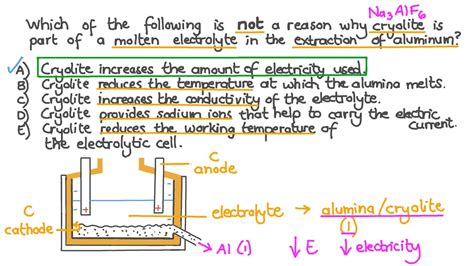 Which of the following is not a reason why cryolite is
Na3AlF6
part of a molten electrolyte in the extraction of aluminum?
A) Cryolite increases the amount of electricity used.
B) Cryolite reduces the temperature at which the alumina melts.
C) Cryolite increases the conductivity of the electrolyte.
D) Cryolite provides sodium ions that help to carry the electric
current.
E) Cryolite reduces the working temperature of
the electrolytic cell.
C
anode
C
cathode
+ +
electrolyte → alumina/cryolite
(l)
Al (l) ↓ E ↓ electricity